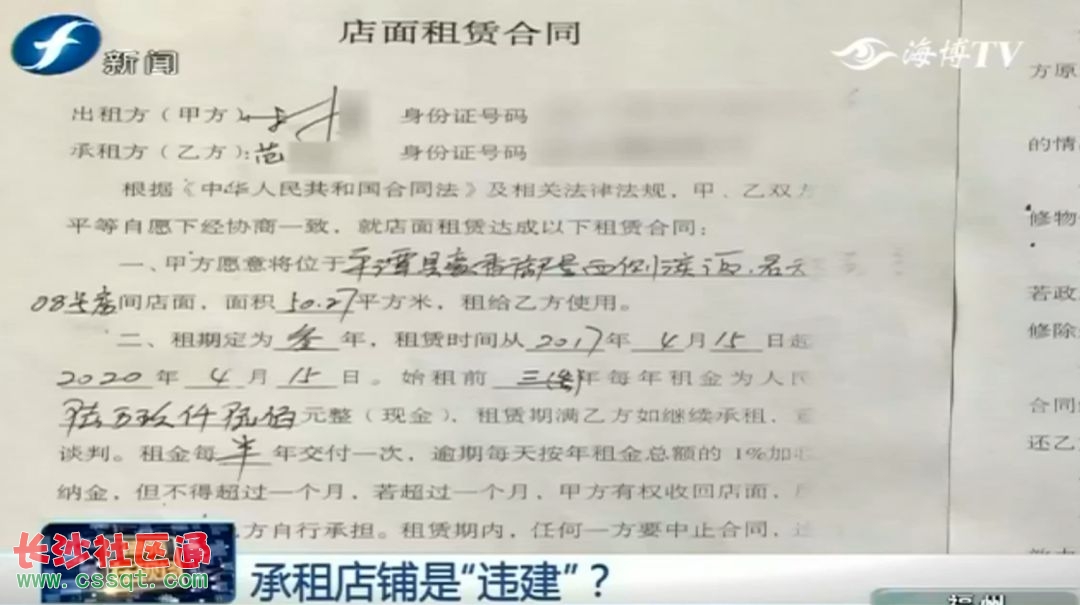 新闻
海博TV
店面租赁合同
出租方（甲方）
身份证号码
承租方（乙方）：范
身份证号码
根据《中华人民共和国合同法》及相关法律法规，甲、乙双方
平等自愿下经协商一致，就店面租赁达成以下租赁合同：
一、甲方愿意将位于平潭县
08号店间店面，面积50.27平方米，租给乙方使用。
二、租期定为叁年，租赁时间从2017年4月15日起
2020年4月15日。始租前三年每年租金为人民
陆万玖仟 佰元整（现金），租赁期满乙方如继续承租，
谈判。租金每半年交付一次，逾期每天按年租金总额的1%加收
纳金，但不得超过一个月，若超过一个月，甲方有权收回店面，
方自行承担。租赁期内，任何一方要中止合同，
方原
的情
修物
若政
修除
合同
还乙
长沙社区通
www.cssqt.com
承租店铺是“违建”？
福州